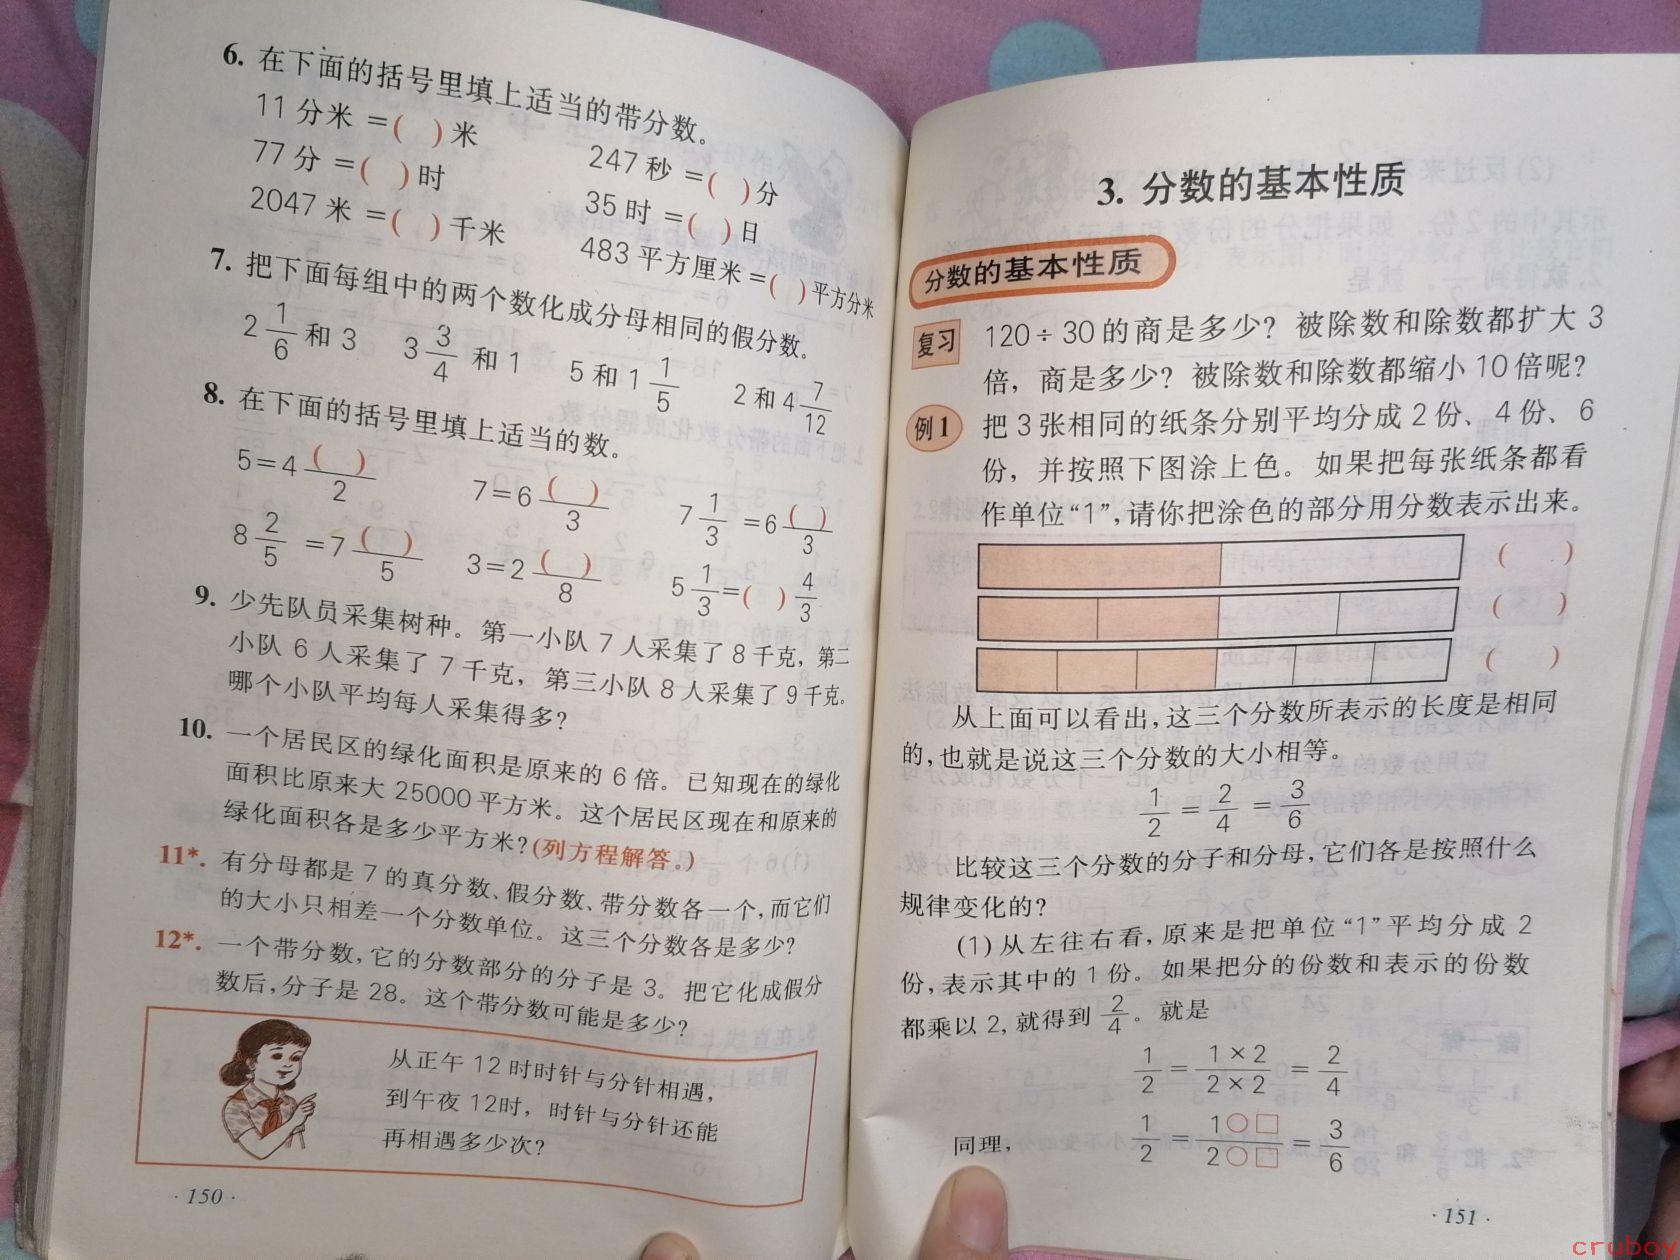 6. 在下面的括号里填上适当的带分数。
11 分米 =( )米
247 秒 =( )分
77 分 =( )时
35 时 =( )日
2047 米 =( )千米
483 平方厘米 =( )平方分米
7. 把下面每组中的两个数化成分母相同的假分数。
2 1/6 和 3 3 3/4 和 1 5 和 1 1/5 2 和 4 7/12
8. 在下面的括号里填上适当的数。
5=4 ( )/2 7=6 ( )/3 7 1/3 =6 ( )/3
8 2/5 =7 ( )/5 3=2 ( )/8 5 1/3 =( ) 4/3
9. 少先队员采集树种。第一小队 7 人采集了 8 千克，第二
小队 6 人采集了 7 千克，第三小队 8 人采集了 9 千克。
哪个小队平均每人采集得多？
10. 一个居民区的绿化面积是原来的 6 倍。已知现在的绿化
面积比原来大 25000 平方米。这个居民区现在和原来的
绿化面积各是多少平方米？(列方程解答。)
11*. 有分母都是 7 的真分数、假分数、带分数各一个，而它们
的大小只相差一个分数单位。这三个分数各是多少？
12*. 一个带分数，它的分数部分的分子是 3。把它化成假分
数后，分子是 28。这个带分数可能是多少？
从正午 12 时时针与分针相遇，
到午夜 12时，时针与分针还能
再相遇多少次？
· 150 ·
3. 分数的基本性质
分数的基本性质
复习 120÷30 的商是多少？被除数和除数都扩大 3
倍，商是多少？被除数和除数都缩小 10 倍呢？
例1 把 3 张相同的纸条分别平均分成 2 份、4 份、6
份，并按照下图涂上色。如果把每张纸条都看
作单位“1”，请你把涂色的部分用分数表示出来。
( )
( )
( )
从上面可以看出，这三个分数所表示的长度是相同
的，也就是说这三个分数的大小相等。
1/2 = 2/4 = 3/6
比较这三个分数的分子和分母，它们各是按照什么
规律变化的？
(1) 从左往右看，原来是把单位“1”平均分成 2
份，表示其中的 1 份。如果把分的份数和表示的份数
都乘以 2，就得到 2/4。就是
1/2 = 1×2/2×2 = 2/4
同理， 1/2 = 1○□/2○□ = 3/6
· 151 ·
cruboy